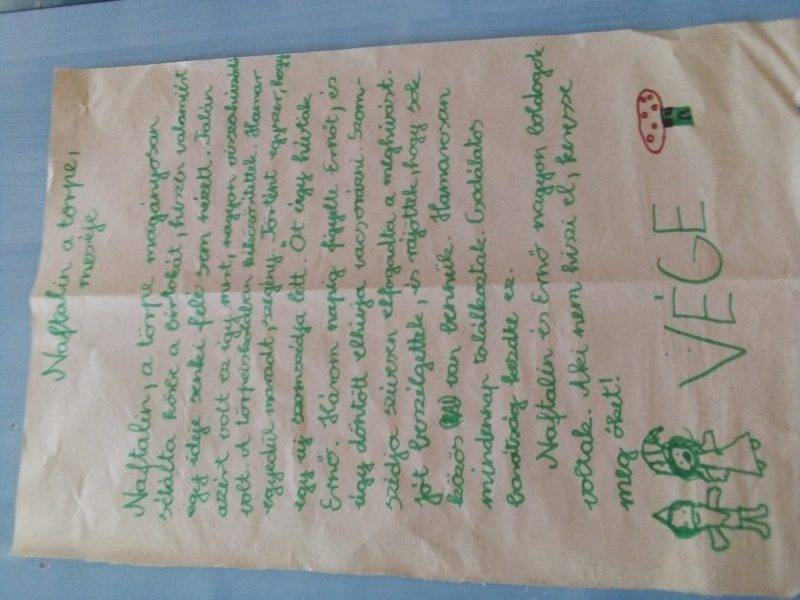 Naftalin a törpe,
meséje
Naftalin, a törpe magányosan
sétálta körbe a birtokát, hiszen valamiért
egy ideje senki felé sem nézett. Talán
azért volt ez így, mert, nagyon visszahúzódó
volt. A törpeiskolában kiközösítették. Hamar
egyedül maradt, szegény. Történt egyszer, hogy
egy új szomszédja lett. Őt úgy hívták
Ernő. Három napig figyelte Ernőt, és
úgy döntött elhívja vacsorázni. Szom-
szédja szívesen elfogadta a meghívást.
Jót beszélgettek, és rájöttek, hogy sok
közös van bennük. Hamarosan
mindennap találkoztak. Csodálatos
barátság kezdte ez.
Naftalin és Ernő nagyon boldogok
voltak. Aki nem hiszi el, keresse
meg őket!
VÉGE